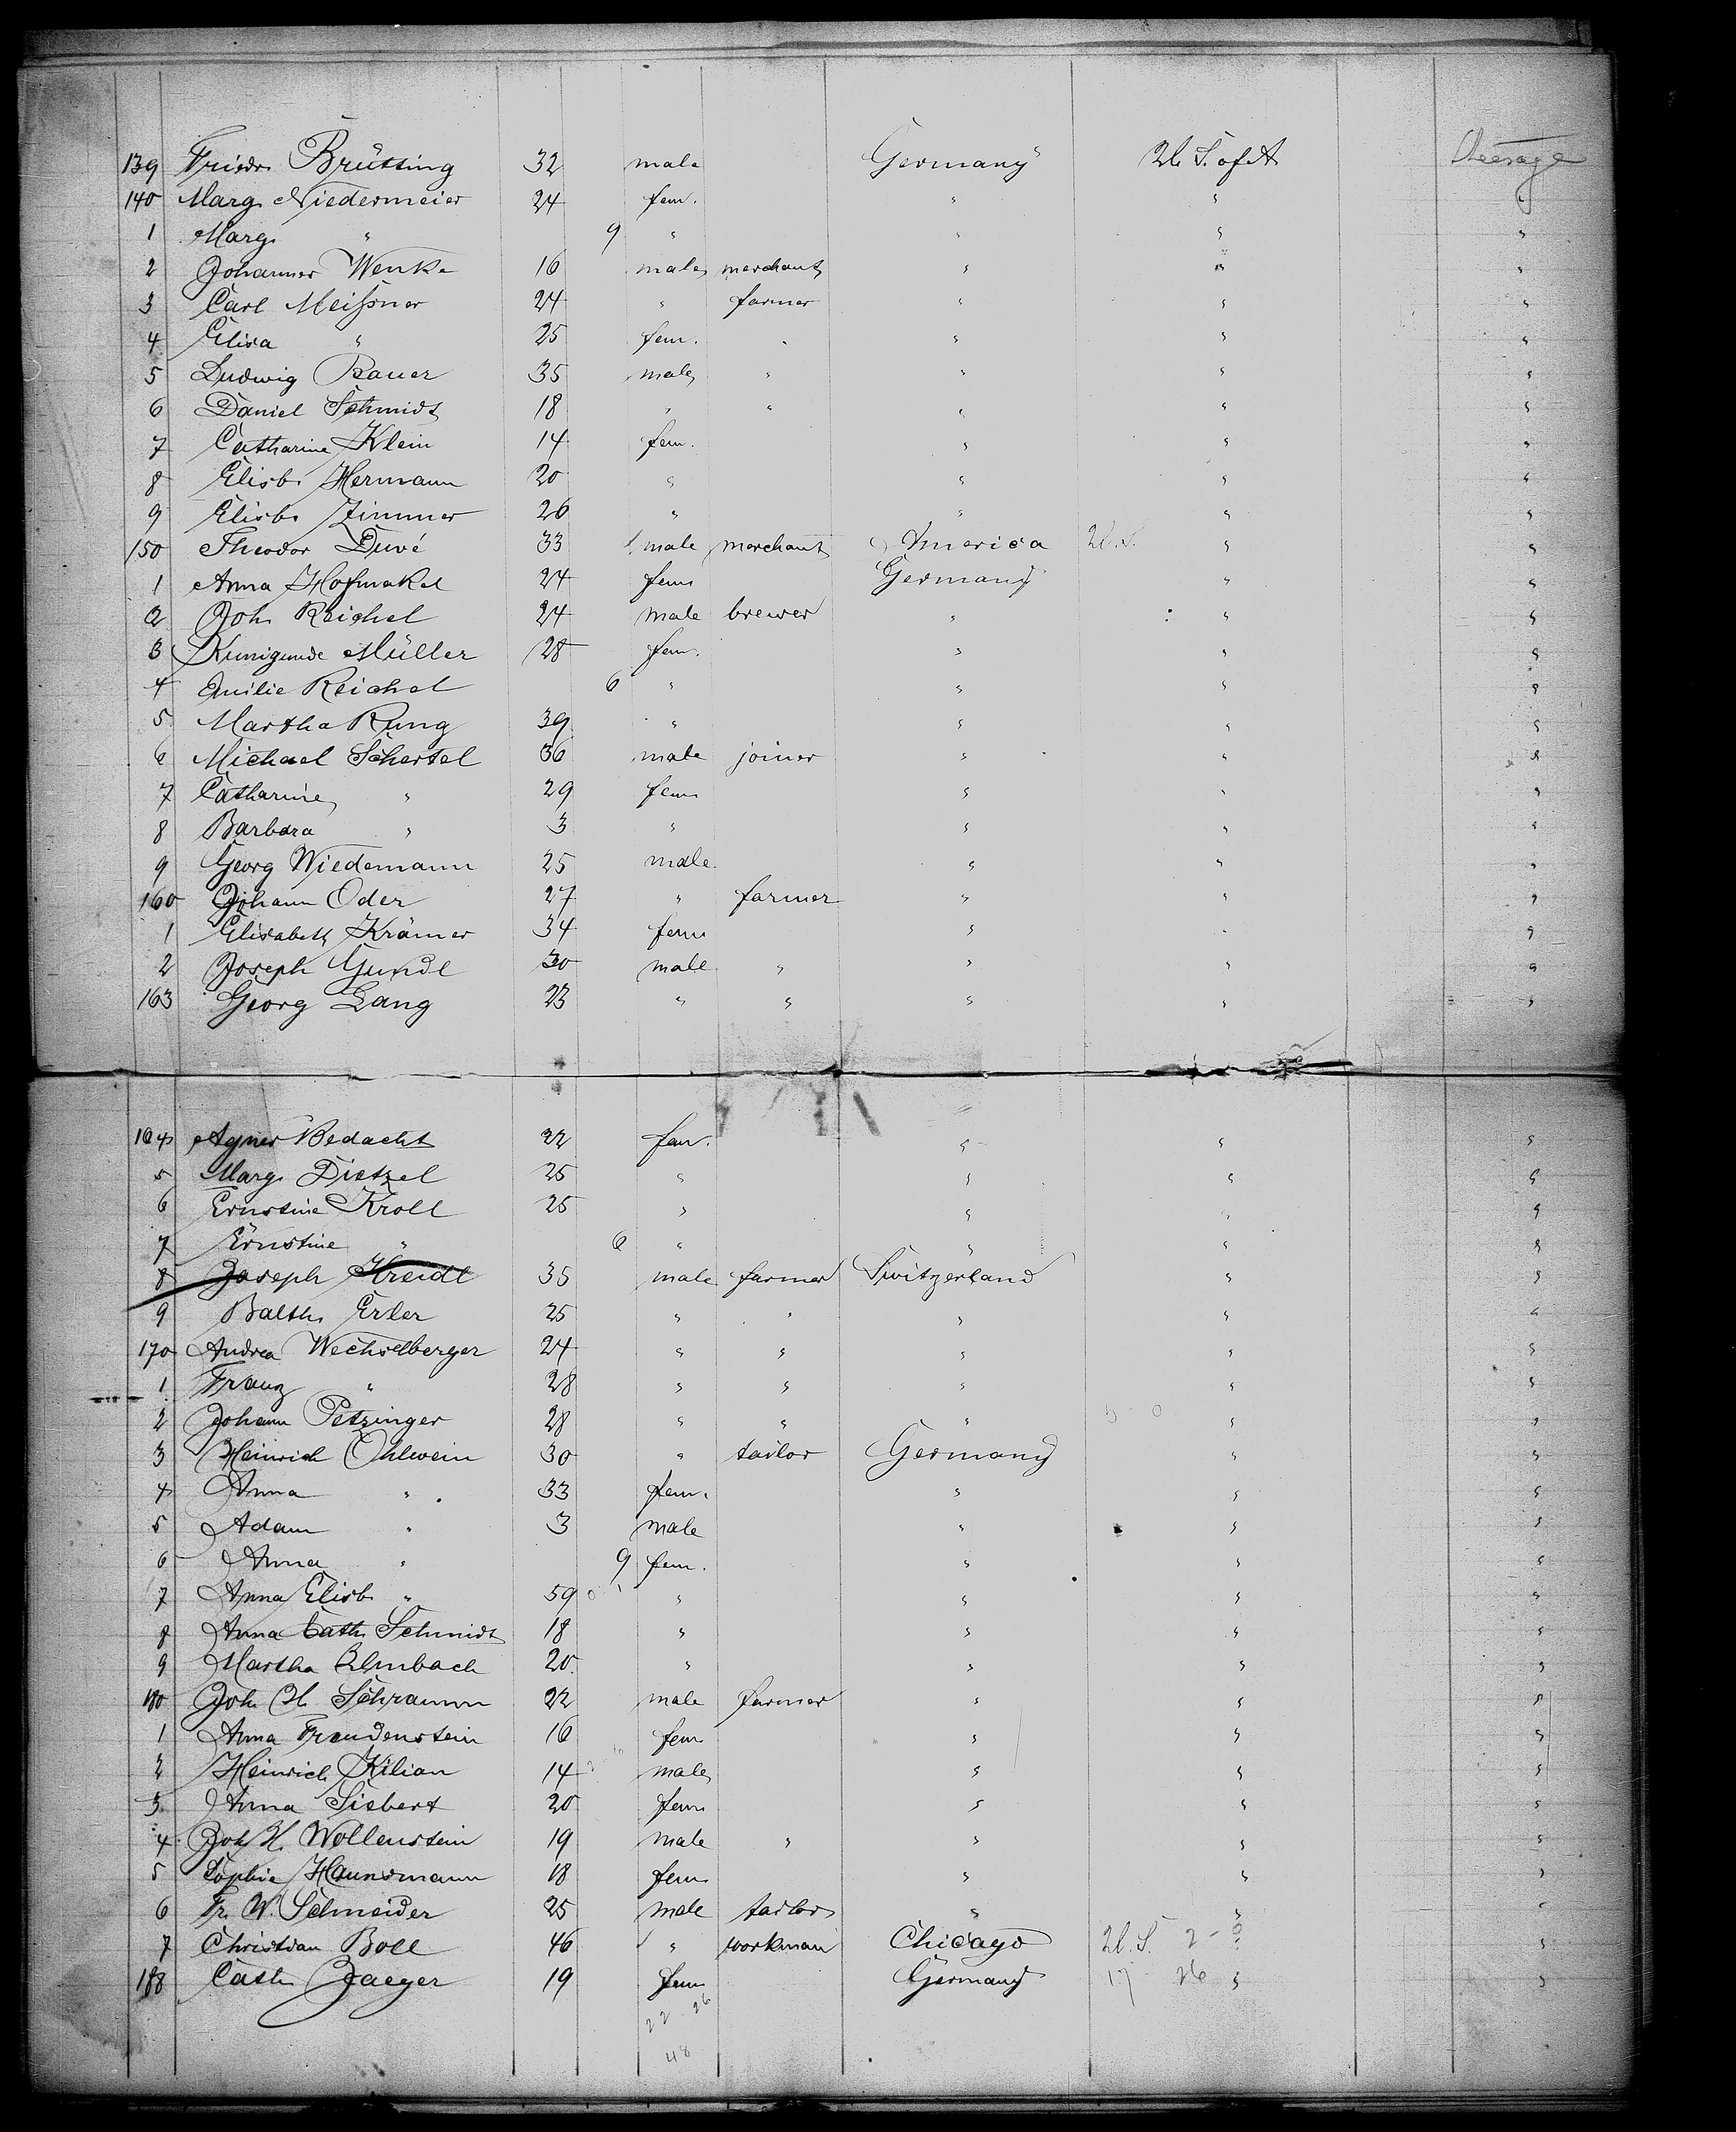 139 Friedr. Brütting 32 male Germany U. S. of A Steerage
140 Marg. Niedermeier 24 fem. " " "
1 Marg. " 9 " " " "
2 Johannes Wenke 16 male merchant " " "
3 Carl Meißner 24 " farmer " " "
4 Elisa " 25 fem. " " " "
5 Ludwig Bauer 35 male " " " "
6 Daniel Schmidt 18 " " " " "
7 Catharine Klein 14 fem. " " "
8 Elisb. Hermann 20 " " " "
9 Elisb. Zimmer 26 " " " "
150 Theodor Duvé 33 male merchant America U. S. " "
1 Anna Hofmakel 24 fem Germany " "
2 Joh. Reichel 24 male brewer " " "
3 Kunigunde Müller 28 fem. " " "
4 Emilie Reichel 6 " " " "
5 Martha Rung 39 " " " "
6 Michael Schertel 36 male joiner " " "
7 Catharine " 29 fem " " "
8 Barbara " 3 " " " "
9 Georg Wiedemann 25 male " " "
160 Johann Oder 27 " farmer " " "
1 Elisabeth Krämer 34 fem " " "
2 Joseph Gundl 30 male " " " "
163 Georg Lang 23 " " " " "
164 Agnes Bedacht 22 fem. " " "
5 Marg. Dietzel 25 " " " "
6 Ernstine Kroll 25 " " " "
7 Ernstine " 6 " " " "
8 Joseph Kreidl 35 male farmer Switzerland " "
9 Balth. Erler 25 " " " " "
170 Andrea Wechselberger 24 " " " " "
1 Franz " 28 " " " " "
2 Johann Petzinger 28 " " " " "
3 Heinrich Ohlwein 30 " tailor Germany " "
4 Anna " 33 fem. " " "
5 Adam " 3 male " " "
6 Anna " 9 fem. " " "
7 Anna Elisb. " 59 " " " "
8 Anna Cath. Schmidt 18 " " " "
9 Martha Elmbach 20 " " " "
180 Joh. H. Schramm 22 male farmer " " "
1 Anna Freudenstein 16 fem " " "
2 Heinrich Kilian 14 male " " "
3 Anna Siebert 20 fem " " "
4 Joh. H. Wollenstein 19 male " " " "
5 Sophie Hansmann 18 fem " " "
6 Fr. W. Schneider 25 male tailor " " "
7 Christian Boll 46 " workman Chicago U. S. 2 - 0 " "
188 Cath. Jaeger 19 fem Germany 17 26 " "
22 26
48